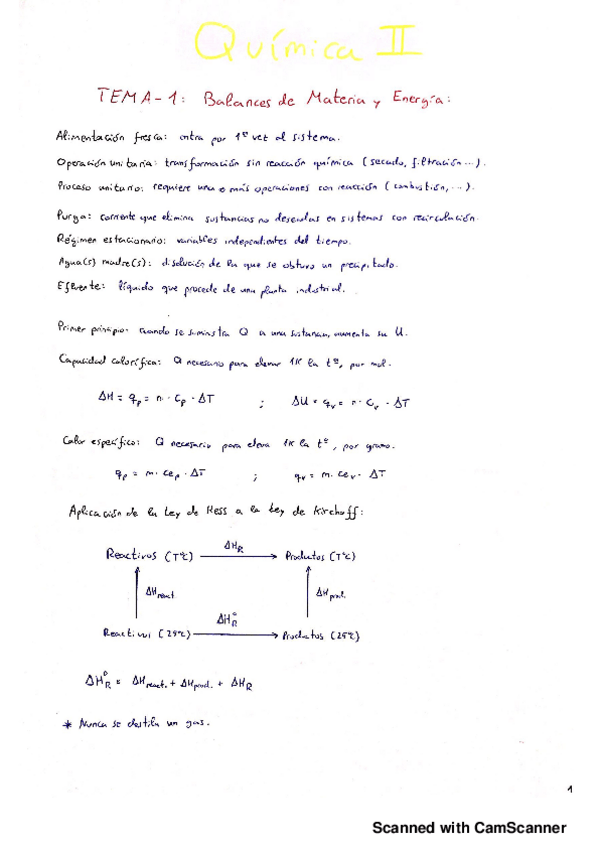 Química II
TEMA-1: Balances de Materia y Energía:
Alimentación fresca: entra por 1ª vez al sistema.
Operación unitaria: transformación sin reacción química (secado, filtración...).
Proceso unitario: requiere una o más operaciones con reacción (combustión,...).
Purga: corriente que elimina sustancias no deseadas en sistemas con recirculación.
Régimen estacionario: variables independientes del tiempo.
Agua(s) madre(s): disolución de la que se obtuvo un precipitado.
Efluente: líquido que procede de una planta industrial.
Primer principio: cuando se suministra Q a una sustancia, aumenta su U.
Capacidad calorífica: Q necesario para elevar 1K la tª, por mol.
ΔH = qp = n · Cp · ΔT ; ΔU = qv = n · Cv · ΔT
Calor específico: Q necesario para eleva 1K la tª, por gramo.
qp = m · cep · ΔT ; qv = m · cev · ΔT
Aplicación de la Ley de Hess a la Ley de Kirchoff:
ΔHR
Reactivos (TºC) → Productos (TºC)
ΔHreact. ΔHprod.
ΔHºR
Reactivos (25ºC) → Productos (25ºC)
ΔHºR = ΔHreact. + ΔHprod. + ΔHR
* Nunca se destila un gas.
1
Scanned with CamScanner